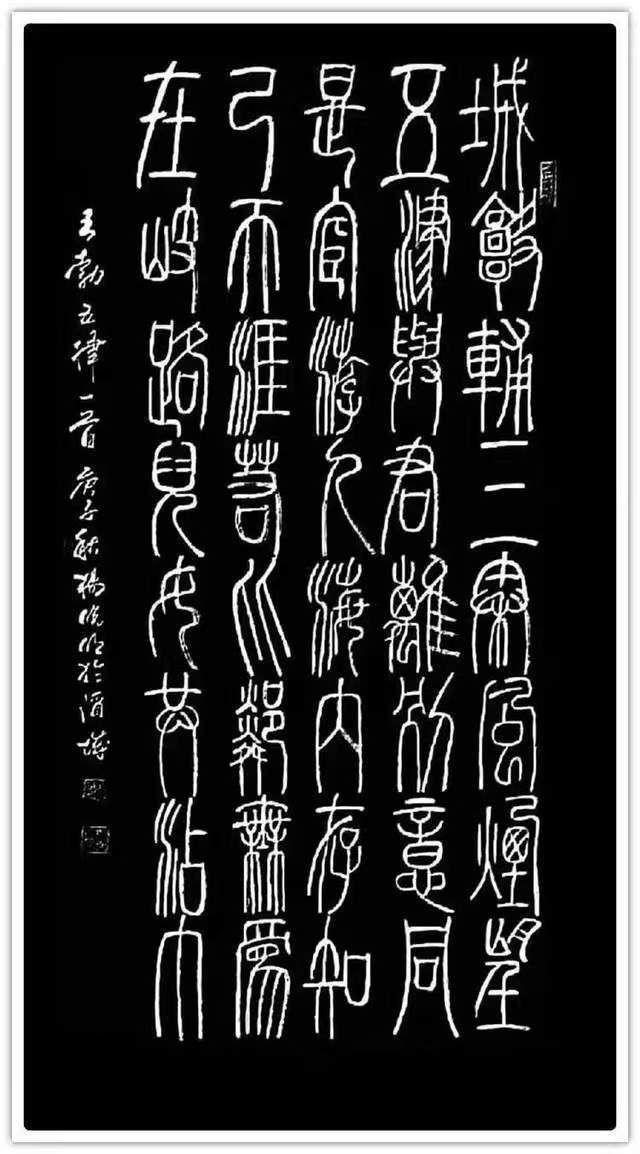 城闕輔三秦風煙望
五津與君離別意同
是宦游人海内存知
己天涯若比鄰無爲
在岐路兒女共沾巾
王勃五律一首庚子秋楊於淄博